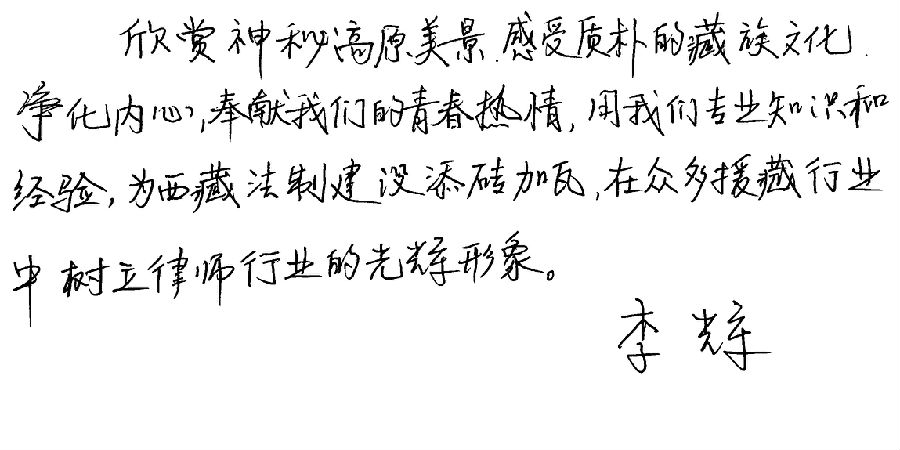 欣赏神秘高原美景.感受质朴的藏族文化.
净化内心,奉献我们的青春热情,用我们专业知识和
经验,为西藏法制建设添砖加瓦,在众多援藏行业
中树立律师行业的光辉形象。
李辉